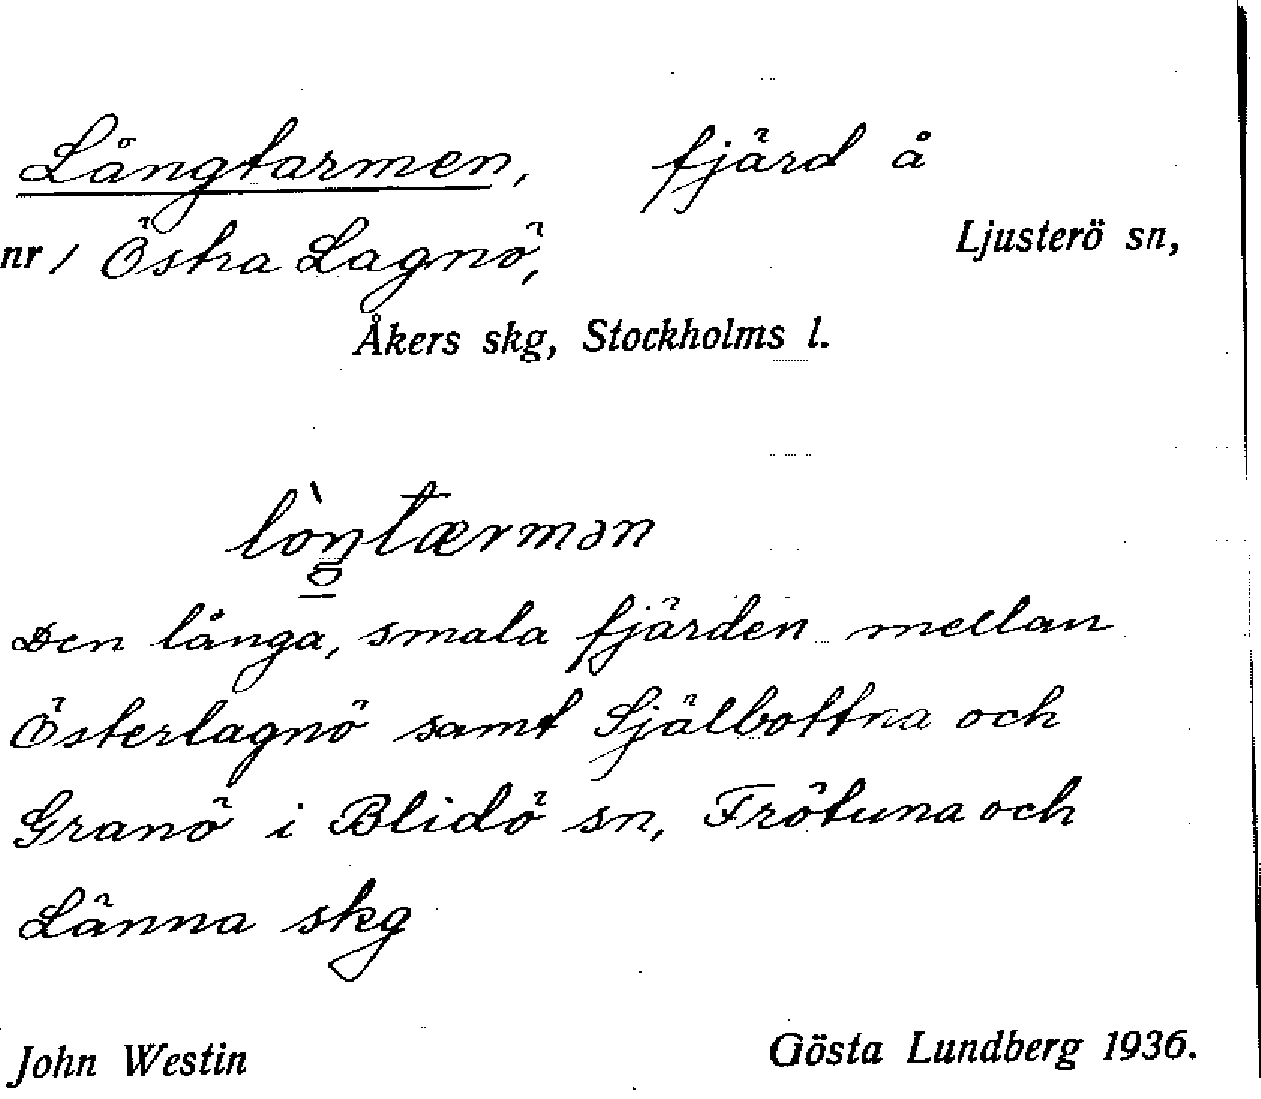 Långtarmen, fjärd å
nr 1 Östra Lagnö, Ljusterö sn,
Åkers skg, Stockholms l.
lòŋtærmən
Den långa, smala fjärden mellan
Österlagnö samt Själbottna och
Granö i Blidö sn, Frötuna och
Länna skg
John Westin Gösta Lundberg 1936.